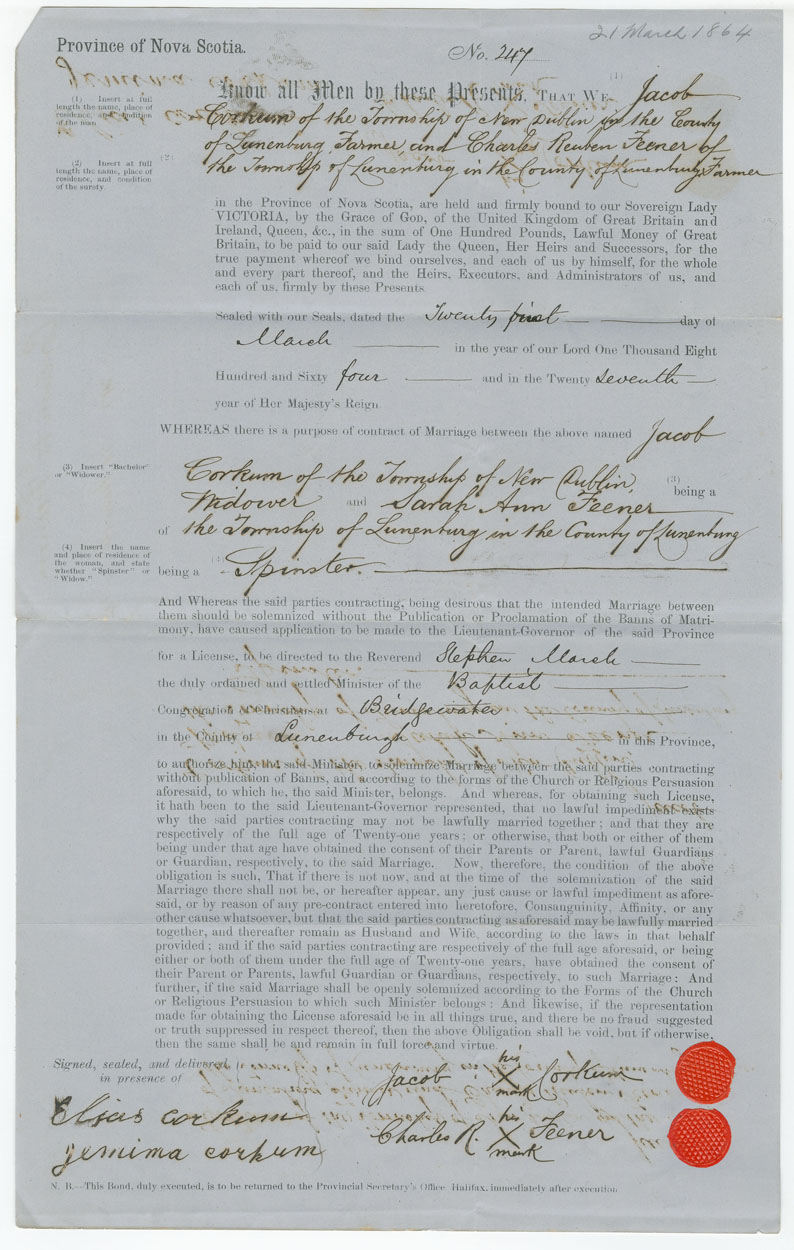 21 March 1864
Province of Nova Scotia.
No. 247
Know all Men by these Presents, THAT WE (1) Jacob
(1) Insert at full length the name, place of residence, and condition of the man.
Corkum of the Township of New Dublin in the County
of Lunenburg Farmer and Charles Reuben Feener of
(2) Insert at full length the name, place of residence, and condition of the surety.
(2)
the Township of Lunenburg in the County of Lunenburg Farmer
in the Province of Nova Scotia, are held and firmly bound to our Sovereign Lady
VICTORIA, by the Grace of GOD, of the United Kingdom of Great Britain and
Ireland, Queen, &c., in the sum of One Hundred Pounds, Lawful Money of Great
Britain, to be paid to our said Lady the Queen, Her Heirs and Successors, for the
true payment whereof we bind ourselves, and each of us by himself, for the whole
and every part thereof, and the Heirs, Executors, and Administrators of us, and
each of us, firmly by these Presents
Sealed with our Seals, dated the Twenty first day of
March in the year of our Lord One Thousand Eight
Hundred and Sixty four and in the Twenty seventh
year of Her Majesty's Reign
WHEREAS there is a purpose of contract of Marriage between the above named Jacob
(3) Insert "Bachelor" or "Widower."
Corkum of the Township of New Dublin, (3) being a
Widower and Sarah Ann Feener
of the Township of Lunenburg in the County of Lunenburg
(4) Insert the name and place of residence of the woman, and state whether "Spinster" or "Widow."
being a (4) Spinster.
And Whereas the said parties contracting, being desirous that the intended Marriage between
them should be solemnized without the Publication or Proclamation of the Banns of Matri-
mony, have caused application to be made to the Lieutenant-Governor of the said Province
for a License, to be directed to the Reverend Stephen March
the duly ordained and settled Minister of the Baptist
Congregation of Christians at Bridgewater
in the County of Lunenburgh in this Province,
to authorize him, the said Minister, to solemnize Marriage between the said parties contracting
without publication of Banns, and according to the forms of the Church or Religious Persuasion
aforesaid, to which he, the said Minister, belongs. And whereas, for obtaining such License,
it hath been to the said Lieutenant-Governor represented, that no lawful impediment exists
why the said parties contracting may not be lawfully married together; and that they are
respectively of the full age of Twenty-one years; or otherwise, that both or either of them
being under that age have obtained the consent of their Parents or Parent, lawful Guardians
or Guardian, respectively, to the said Marriage. Now, therefore, the condition of the above
obligation is such, That if there is not now, and at the time of the solemnization of the said
Marriage there shall not be, or hereafter appear, any just cause or lawful impediment as afore-
said, or by reason of any pre-contract entered into heretofore, Consanguinity, Affinity, or any
other cause whatsoever, but that the said parties contracting as aforesaid may be lawfully married
together, and thereafter remain as Husband and Wife, according to the laws in that behalf
provided; and if the said parties contracting are respectively of the full age aforesaid, or being
either or both of them under the full age of Twenty-one years, have obtained the consent of
their Parent or Parents, lawful Guardian or Guardians, respectively, to such Marriage: And
further, if the said Marriage shall be openly solemnized according to the Forms of the Church
or Religious Persuasion to which such Minister belongs: And likewise, if the representation
made for obtaining the License aforesaid be in all things true, and there be no fraud suggested
or truth suppressed in respect thereof, then the above Obligation shall be void, but if otherwise,
then the same shall be and remain in full force and virtue.
Signed, sealed, and delivered
in presence of
his
Jacob X Corkum
mark
Elias corkum
his
Charles R. X Feener
mark
jemima corkum
N. B.—This Bond, duly executed, is to be returned to the Provincial Secretary's Office, Halifax, immediately after execution